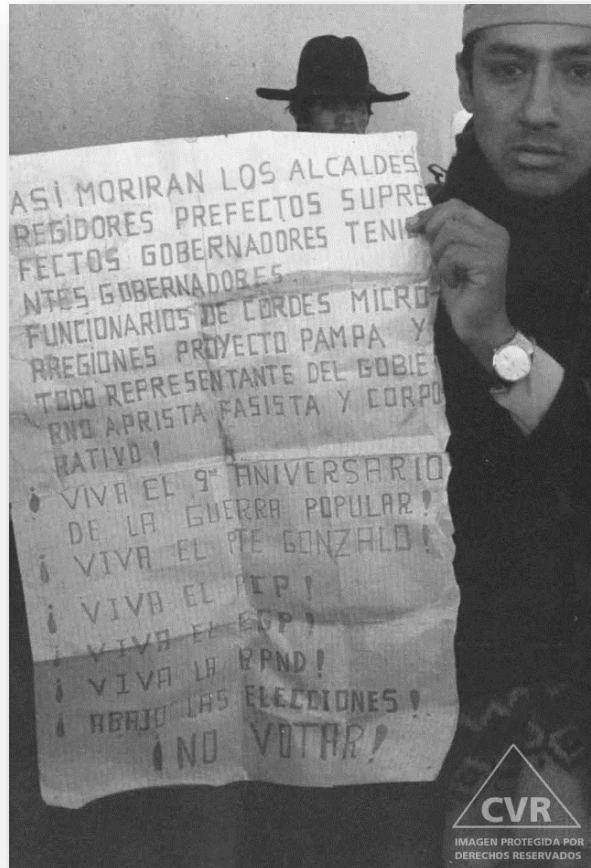 ASÍ MORIRAN LOS ALCALDES
REGIDORES PREFECTOS SUPRE
FECTOS GOBERNADORES TENI
NTES GOBERNADORES.
FUNCIONARIOS DE CORDES MICRO-
RREGIONES PROYECTO PAMPA Y
TODO REPRESENTANTE DEL GOBIE
RNO APRISTA FASISTA Y CORPO
RATIVO!
¡ VIVA EL 9º ANIVERSARIO
DE LA GUERRA POPULAR!
¡ VIVA EL PTE GONZALO!
¡ VIVA EL PCP!
¡ VIVA EL EGP!
¡ VIVA LA RPND!
¡ ABAJO LAS ELECCIONES!
¡NO VOTAR!
CVR
IMAGEN PROTEGIDA POR
DERECHOS RESERVADOS